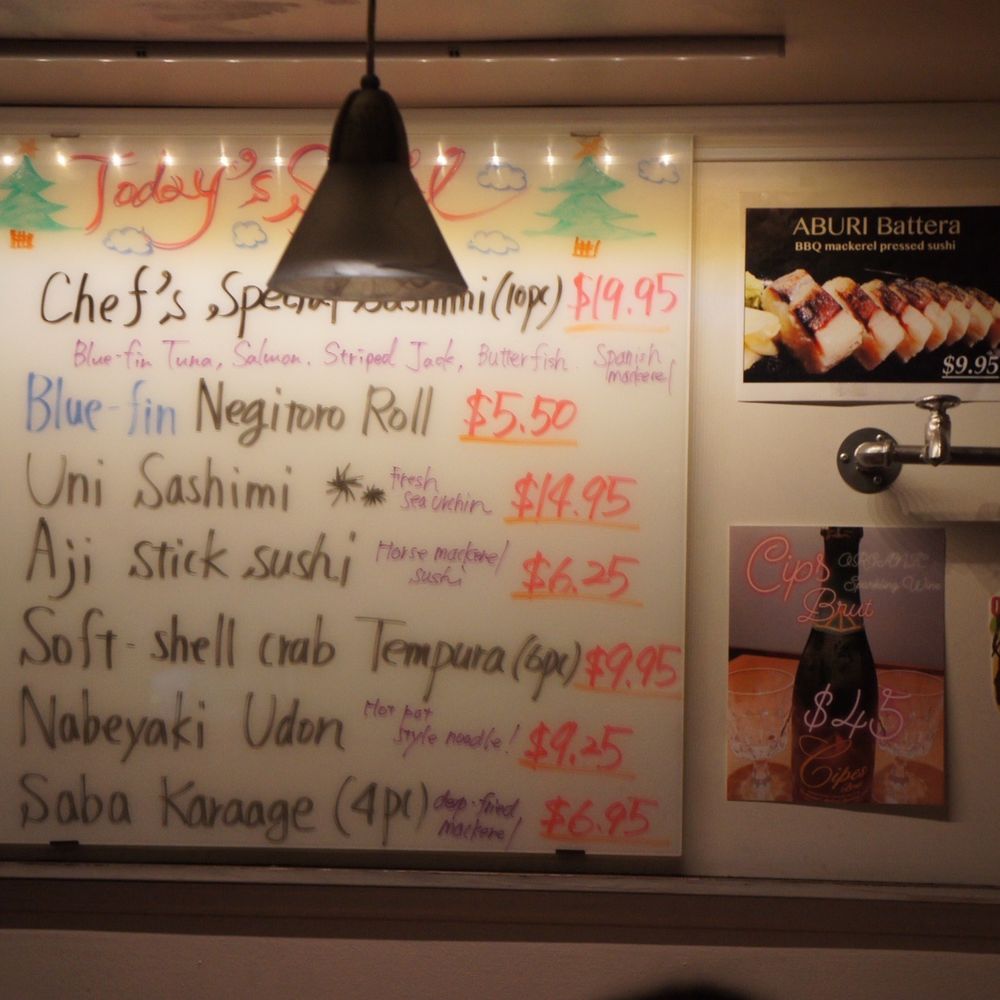 Today's
Chef's Special Sashimi (10pc) $19.95
Blue-fin Tuna, Salmon. Striped Jack, Butterfish. Spanish
mackerel
Blue-fin Negitoro Roll $5.50
Uni Sashimi ** fresh
sea urchin $14.95
Aji stick sushi Horse mackerel
sushi $6.25
Soft-shell crab Tempura (6pc) $9.95
Nabeyaki Udon Hot pot
style noodle! $9.25
Saba Karaage (4pc) deep-fried
mackerel $6.95
ABURI Battera
BBQ mackerel pressed sushi
$9.95
Cips ORGANIC
Sparkling Wine
Brut
$45
Cipes